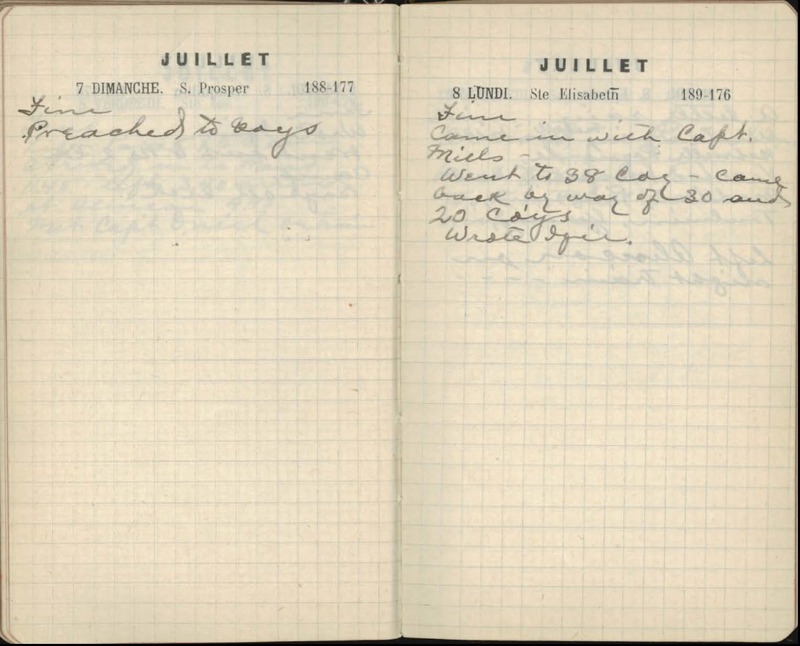 JUILLET
7 DIMANCHE. S. Prosper 188-177
Fine
Preached to Coys
JUILLET
8 LUNDI. Ste Elisabeth 189-176
Fine
Came in with Capt.
Mills -
Went to 38 Coy - came
back by way of 30 and
20 Coys
Wrote